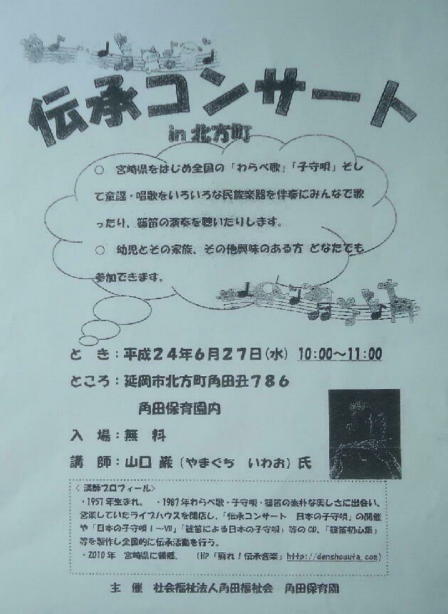 伝承コンサート
in 北方町
○ 宮崎県をはじめ全国の「わらべ歌」「子守唄」そし
て童謡・唱歌をいろいろな民族楽器を伴奏にみんなで歌
ったり、篠笛の演奏を聴いたりします。
○ 幼児とその家族、その他興味のある方 どなたでも
参加できます。
と き：平成24年6月27日(水) 10:00～11:00
ところ：延岡市北方町角田丑786
角田保育園内
入 場：無 料
講 師：山口 巌（やまぐち いわお）氏
＜講師プロフィール＞
・1957年生まれ。 ・1987年わらべ歌・子守唄・篠笛の素朴な美しさに出会い、
営業していたライブハウスを閉店し、「伝承コンサート 日本の子守唄」の開催
や「日本の子守唄Ⅰ～Ⅶ」「篠笛による日本の子守唄」等のCD、「篠笛初心集」
等を製作し全国的に伝承活動を行う。
・2010年 宮崎県に移住。 (HP「蘇れ！伝承音楽」http://denshouuta.com)
主 催 社会福祉法人角田福祉会 角田保育園